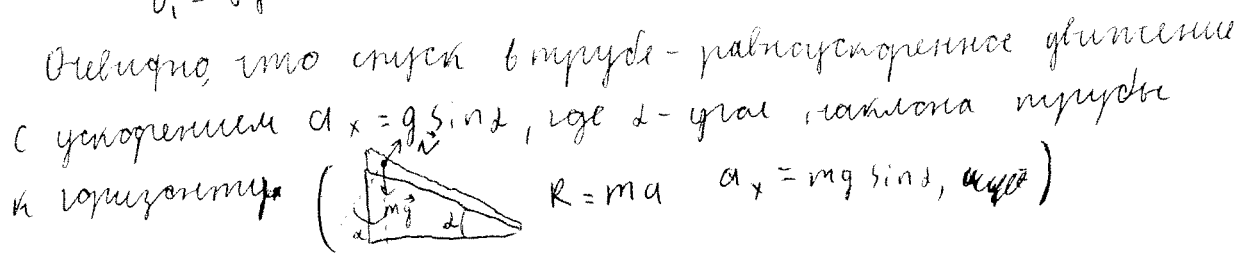 Очевидно, что спуск в трубе - равноускоренное движение
с ускорением a_x = g sinα, где α - угол наклона трубы
к горизонту. (N mg α α R = ma a_x = mg sinα, )